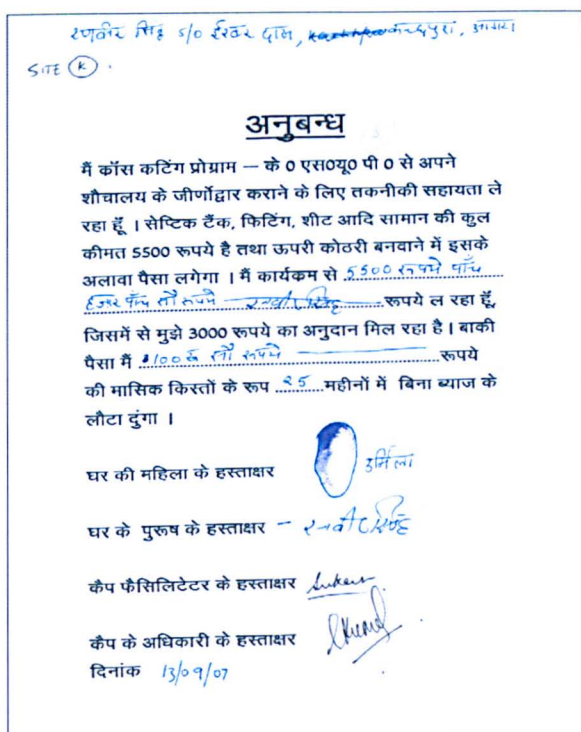 रणवीर सिंह s/o ईश्वर दास, कछपुरा, आगरा
SITE K .
अनुबन्ध
मैं कॉस कटिंग प्रोग्राम – के 0 एस0यू0 पी 0 से अपने
शौचालय के जीर्णोद्वार कराने के लिए तकनीकी सहायता ले
रहा हूँ । सेप्टिक टैंक, फिटिंग, शीट आदि सामान की कुल
कीमत 5500 रूपये है तथा ऊपरी कोठरी बनवाने में इसके
अलावा पैसा लगेगा । मैं कार्यकम से 5500 रूपये पाँच
हजार पाँच सौ रूपये रनवीर सिंह रूपये ल रहा हूँ,
जिसमें से मुझे 3000 रूपये का अनुदान मिल रहा है । बाकी
पैसा मैं 100 सौ रूपये रूपये
की मासिक किस्तों के रूप 25 महीनों में बिना ब्याज के
लौटा दुंगा ।
घर की महिला के हस्ताक्षर उर्मिला
घर के पुरूष के हस्ताक्षर – रनवीर सिंह
कैप फैसिलिटेटर के हस्ताक्षर
कैप के अधिकारी के हस्ताक्षर
दिनांक 13/09/07